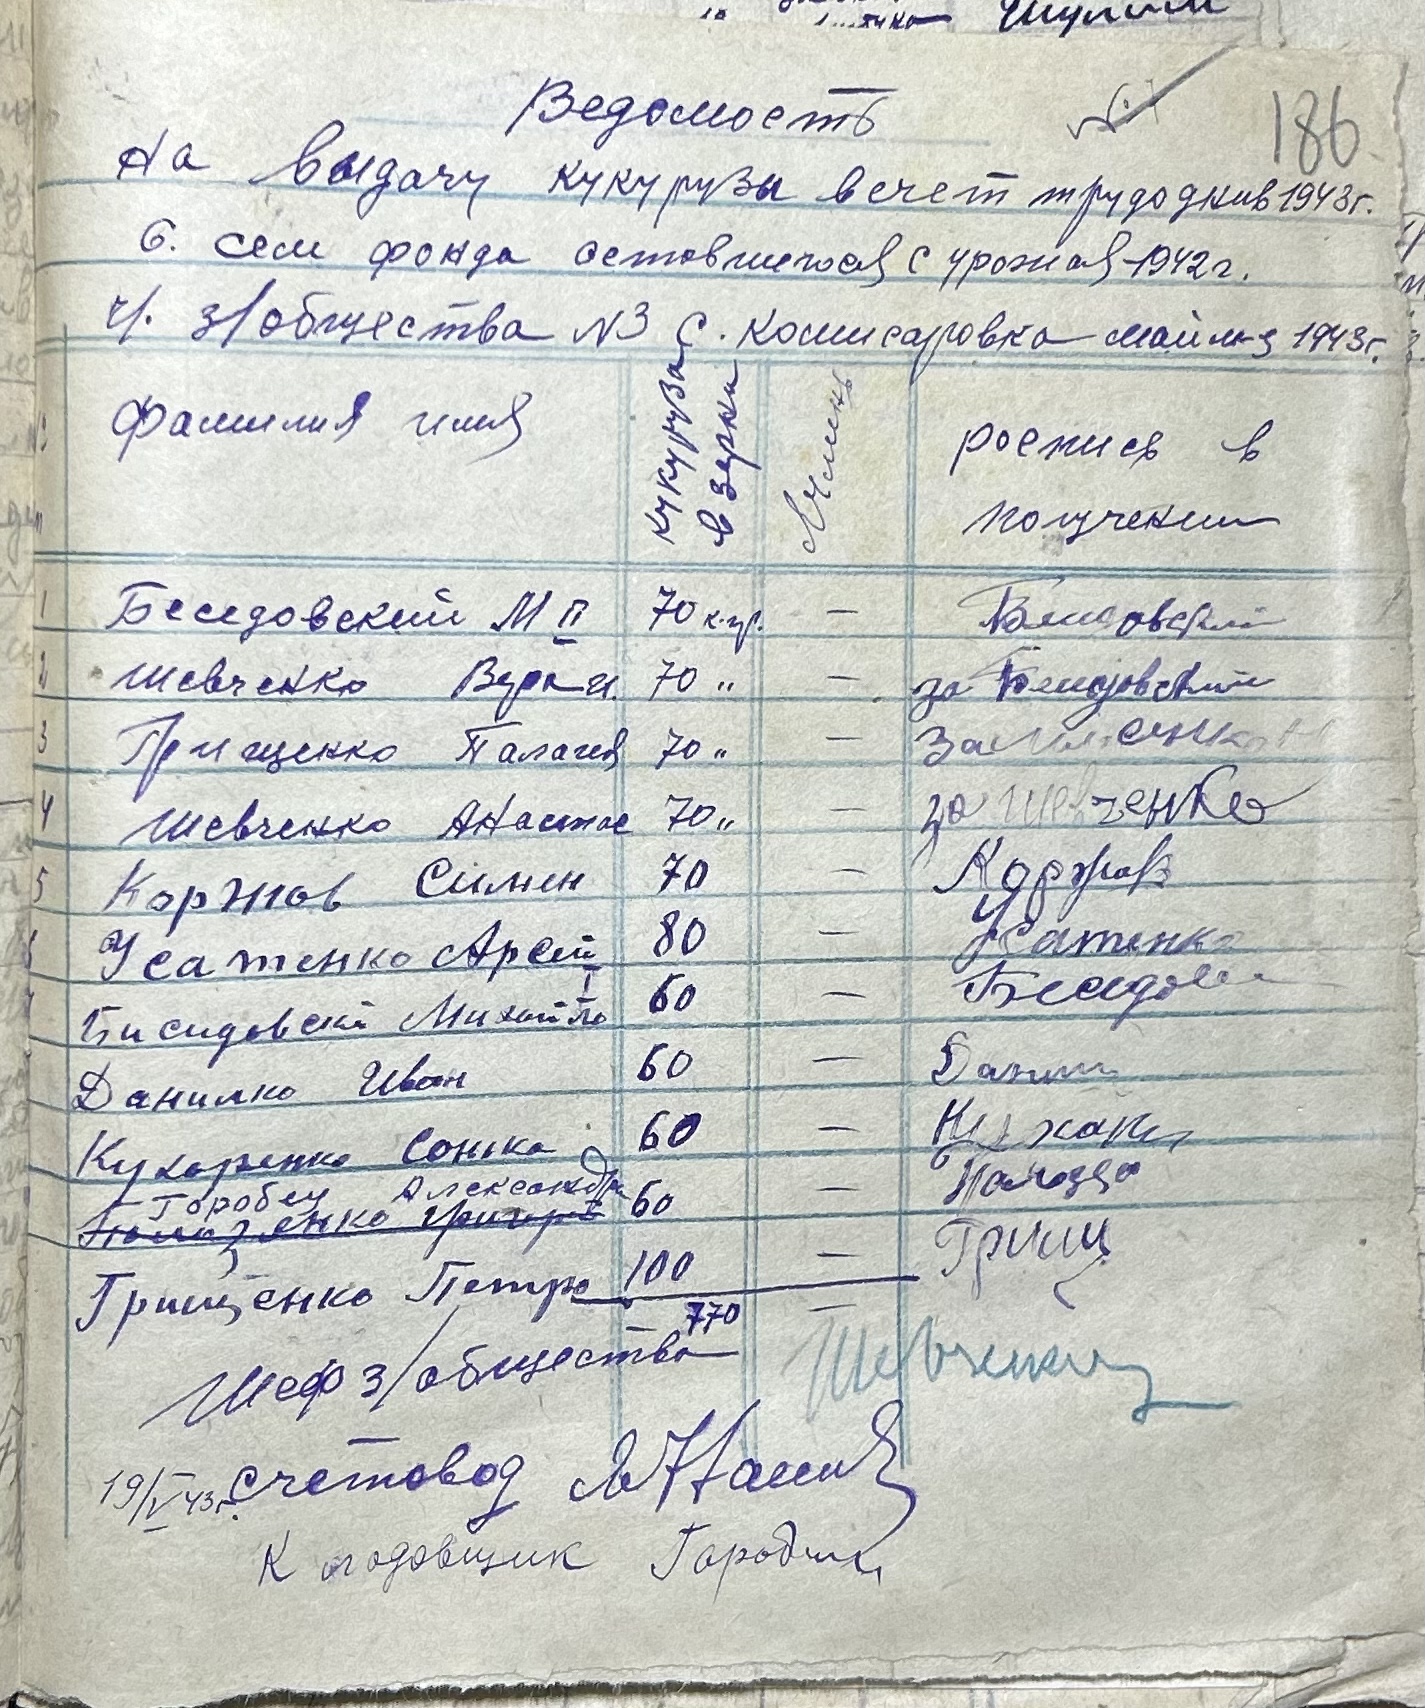 186
Ведомость
На выдачу кукурузы в счет трудодней 1943 г.
с. сем фонда оставшегося с урожая 1942 г.
ч/. з/общества N3 с. Комисаровка май м-ц 1943 г.
Фамилия имя кукуруза в зерне Ячмень роспись в получении
1 Беседовский М II 70 к.гр. —
2 Шевченко Вера И. 70 „ — за Беседовский
3 Грищенко Палагея 70 „ — за
4 Шевченко Анастас 70 „ — за Шевченко
5 Коржов Симен 70 — Коржов
6 Усатенко Арсен 80 — Усатенко
7 Бисидовский Михайло I 60 — Беседовс
Данилко Иван 60 — Данил
Кухаренко Сонка 60 — Кухарь
Горобец Александра 60 —
Грищенко Петро 100 — Грищ
770 —
Шеф з/общества Шевченко
19/V 43 г. Счетовод
Кладовщик